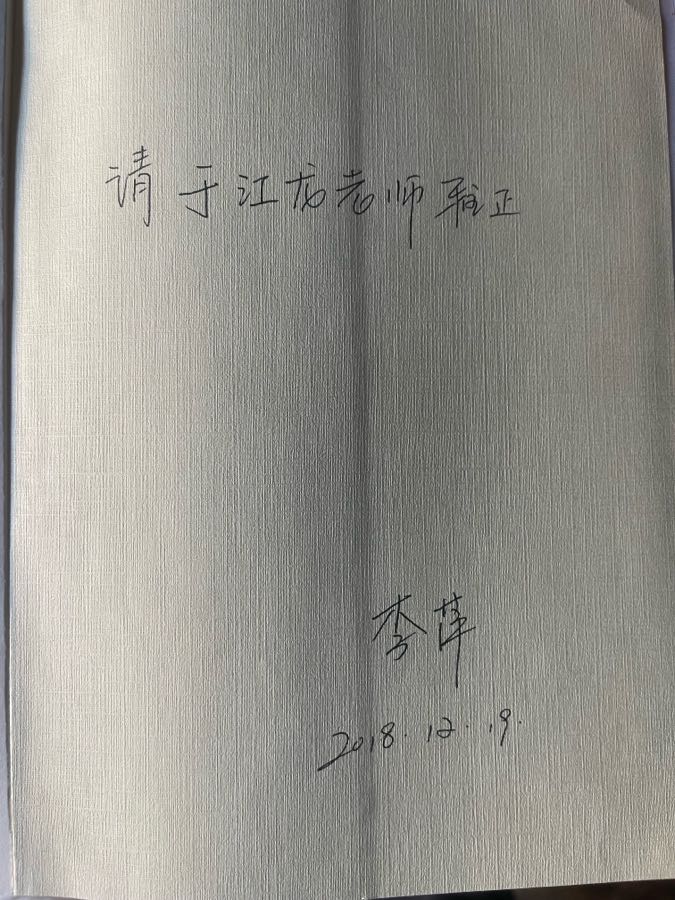 请于江龙老师雅正
李萍
2018.12.19.